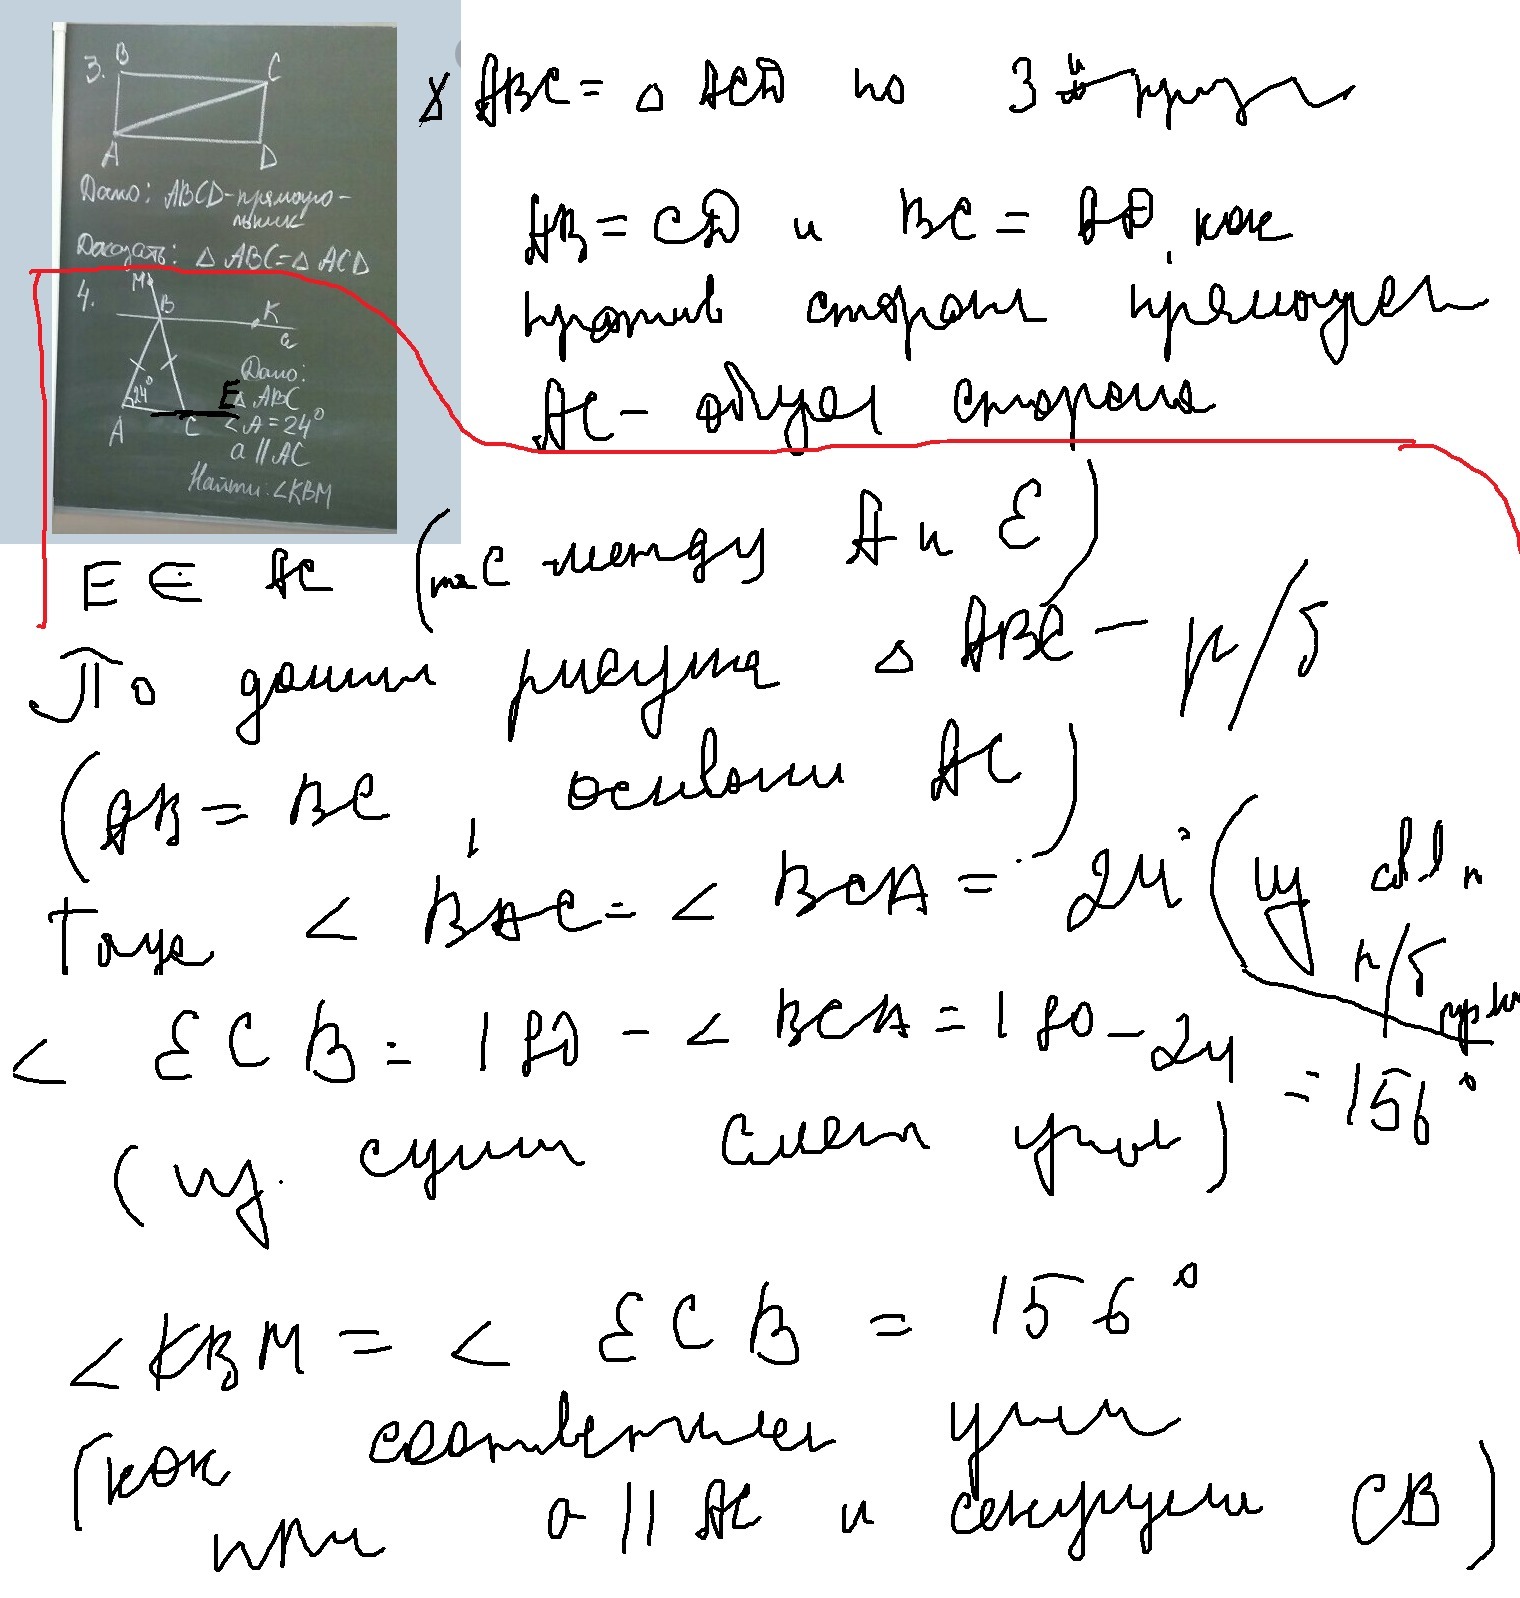 3.
B
C
A
D
Дано: ABCD - прямоуго-
льник
Доказать: △ ABC = △ ACD
4.
M
B
K
a
24°
E
A
C
Дано:
△ ABC
∠A = 24°
a || AC
Найти: ∠KBM
△ ABC = △ ACD по 3 й призн
AB = CD и BC = AD, как
против сторон прямоугол
AC - общая сторона
E ∈ AC (т. C между A и E)
По данным рисунка △ ABC - р/б
(AB = BC, основани AC)
Тогда < BAC = < BCA = 24° (из св-в р/б
< ECB = 180 - < BCA = 180 - 24 = 156°
(из сумм смежн углов)
< KBM = < ECB = 156°
(как соответствен углы
при a || AC и секущей CB)